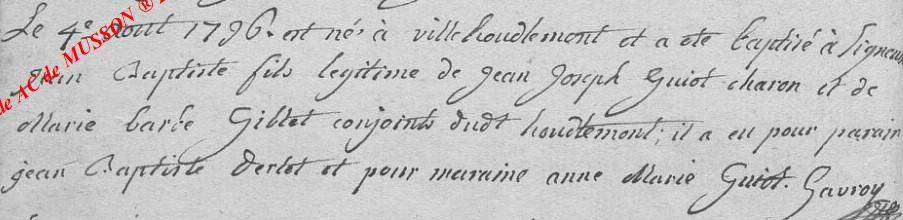 Le 4e Aout 1796. est né à villehoudlemont et a ete baptisé à Signeux
Jean Baptiste fils legitime de jean Joseph Guiot charon et de
Marie barbe Gillet conjoints dudt houdlemont; il a eu pour parain
jean Baptiste derlet et pour maraine anne Marie Guiot. Gavroy
de AC de MUSSON ®